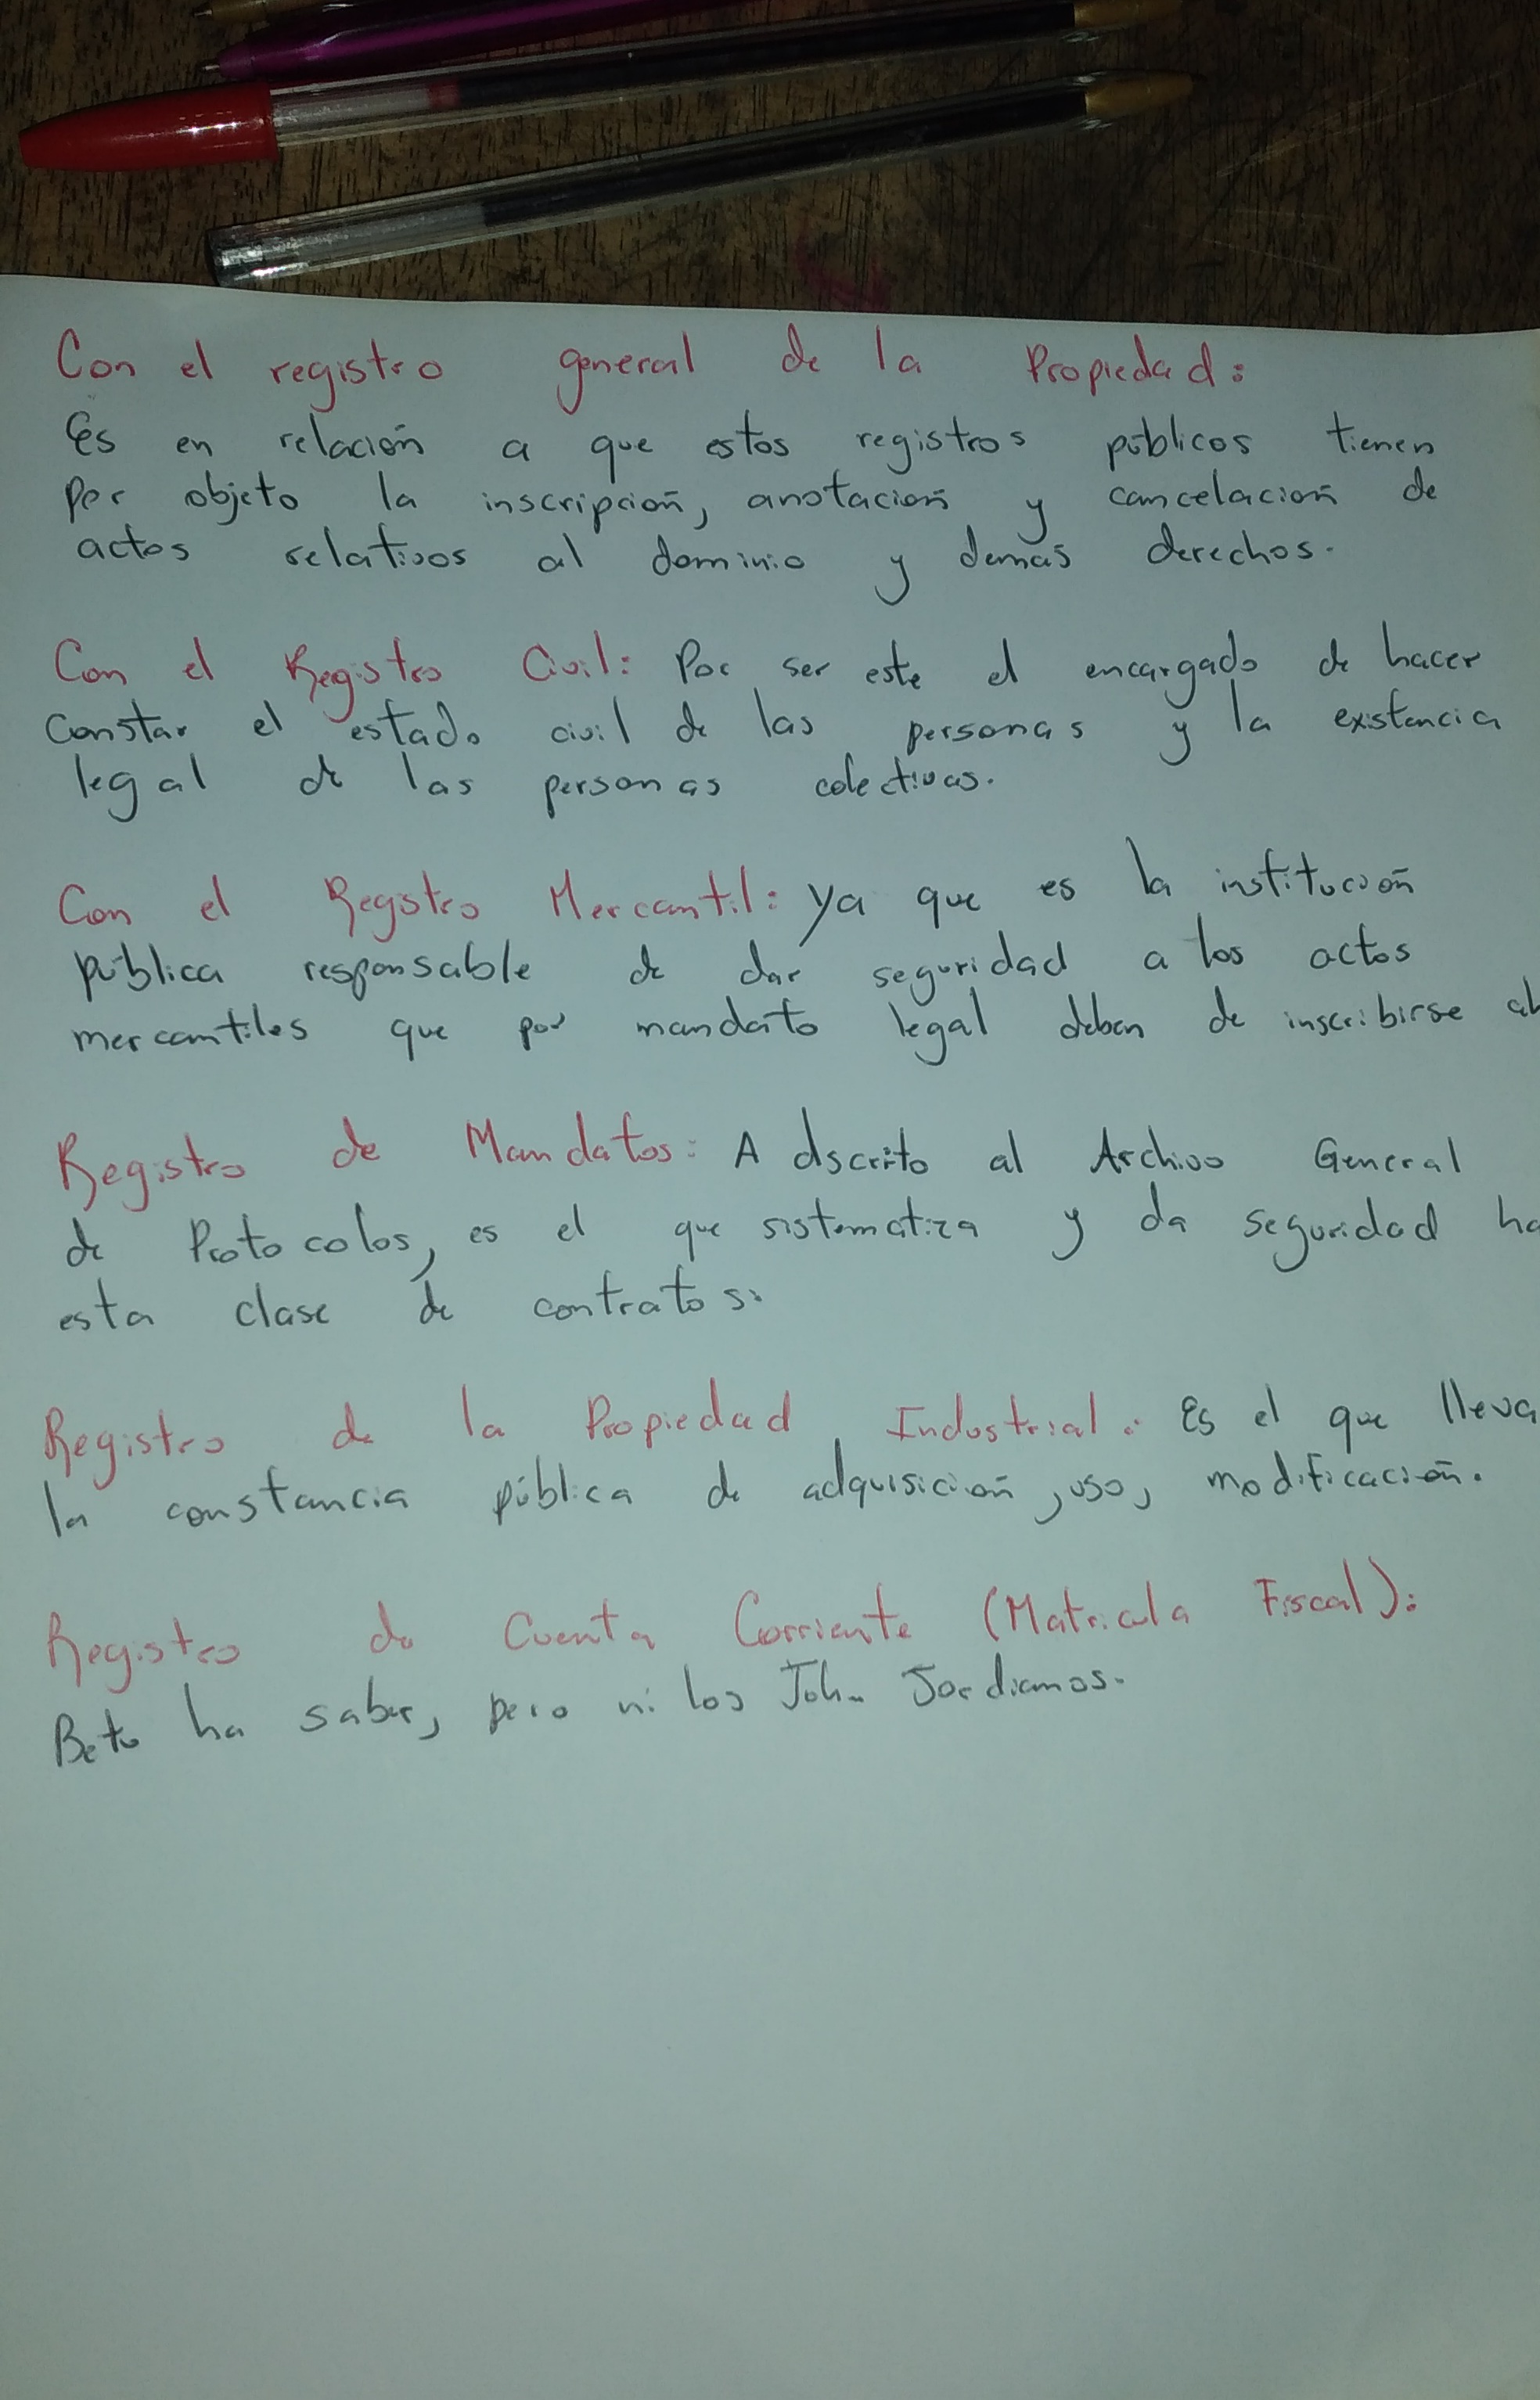 Con el registro general de la Propiedad:
Es en relación a que estos registros públicos tienen
por objeto la inscripción, anotación y cancelación de
actos relativos al dominio y demás derechos.
Con el Registro Civil: Por ser este el encargado de hacer
constar el estado civil de las personas y la existencia
legal de las personas colectivas.
Con el Registro Mercantil: Ya que es la institución
pública responsable de dar seguridad a los actos
mercantiles que por mandato legal deben de inscribirse ah
Registro de Mandatos: Adscrito al Archivo General
de Protocolos, es el que sistematiza y da seguridad ha
esta clase de contratos.
Registro de la Propiedad Industrial: Es el que lleva
la constancia pública de adquisición, uso, modificación.
Registro de Cuenta Corriente (Matricula Fiscal):
Beto ha saber, pero ni los John Jordianos.